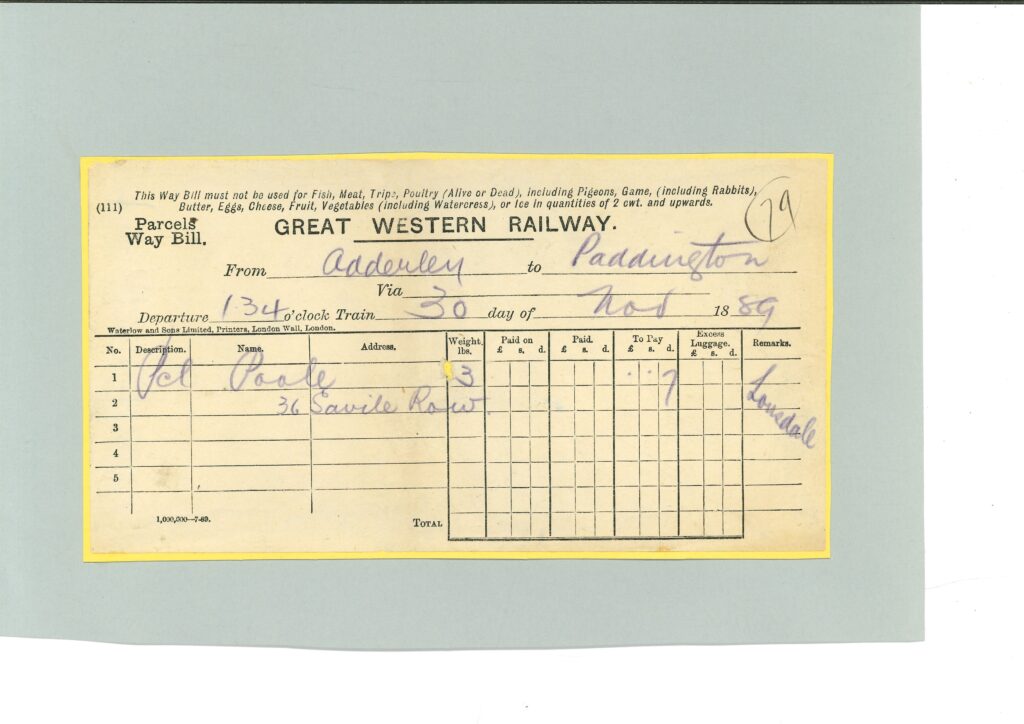 This Way Bill must not be used for Fish, Meat, Tripe, Poultry (Alive or Dead), including Pigeons, Game, (including Rabbits),
(111) Butter, Eggs, Cheese, Fruit, Vegetables (including Watercress), or Ice in quantities of 2 cwt. and upwards.
79
Parcels
Way Bill.
GREAT WESTERN RAILWAY.
From Adderley to Paddington
Via
Departure 1.34 o'clock Train 30 day of Nov 1889
Waterlow and Sons Limited, Printers, London Wall, London.
No. Description. Name. Address. Weight. lbs. Paid on £ s. d. Paid. £ s. d. To Pay £ s. d. Excess Luggage. £ s. d. Remarks.
1 Pcl Poole 3 " " 7 Lonsdale
2 36 Savile Row
3
4
5
1,000,000—7-89.
TOTAL